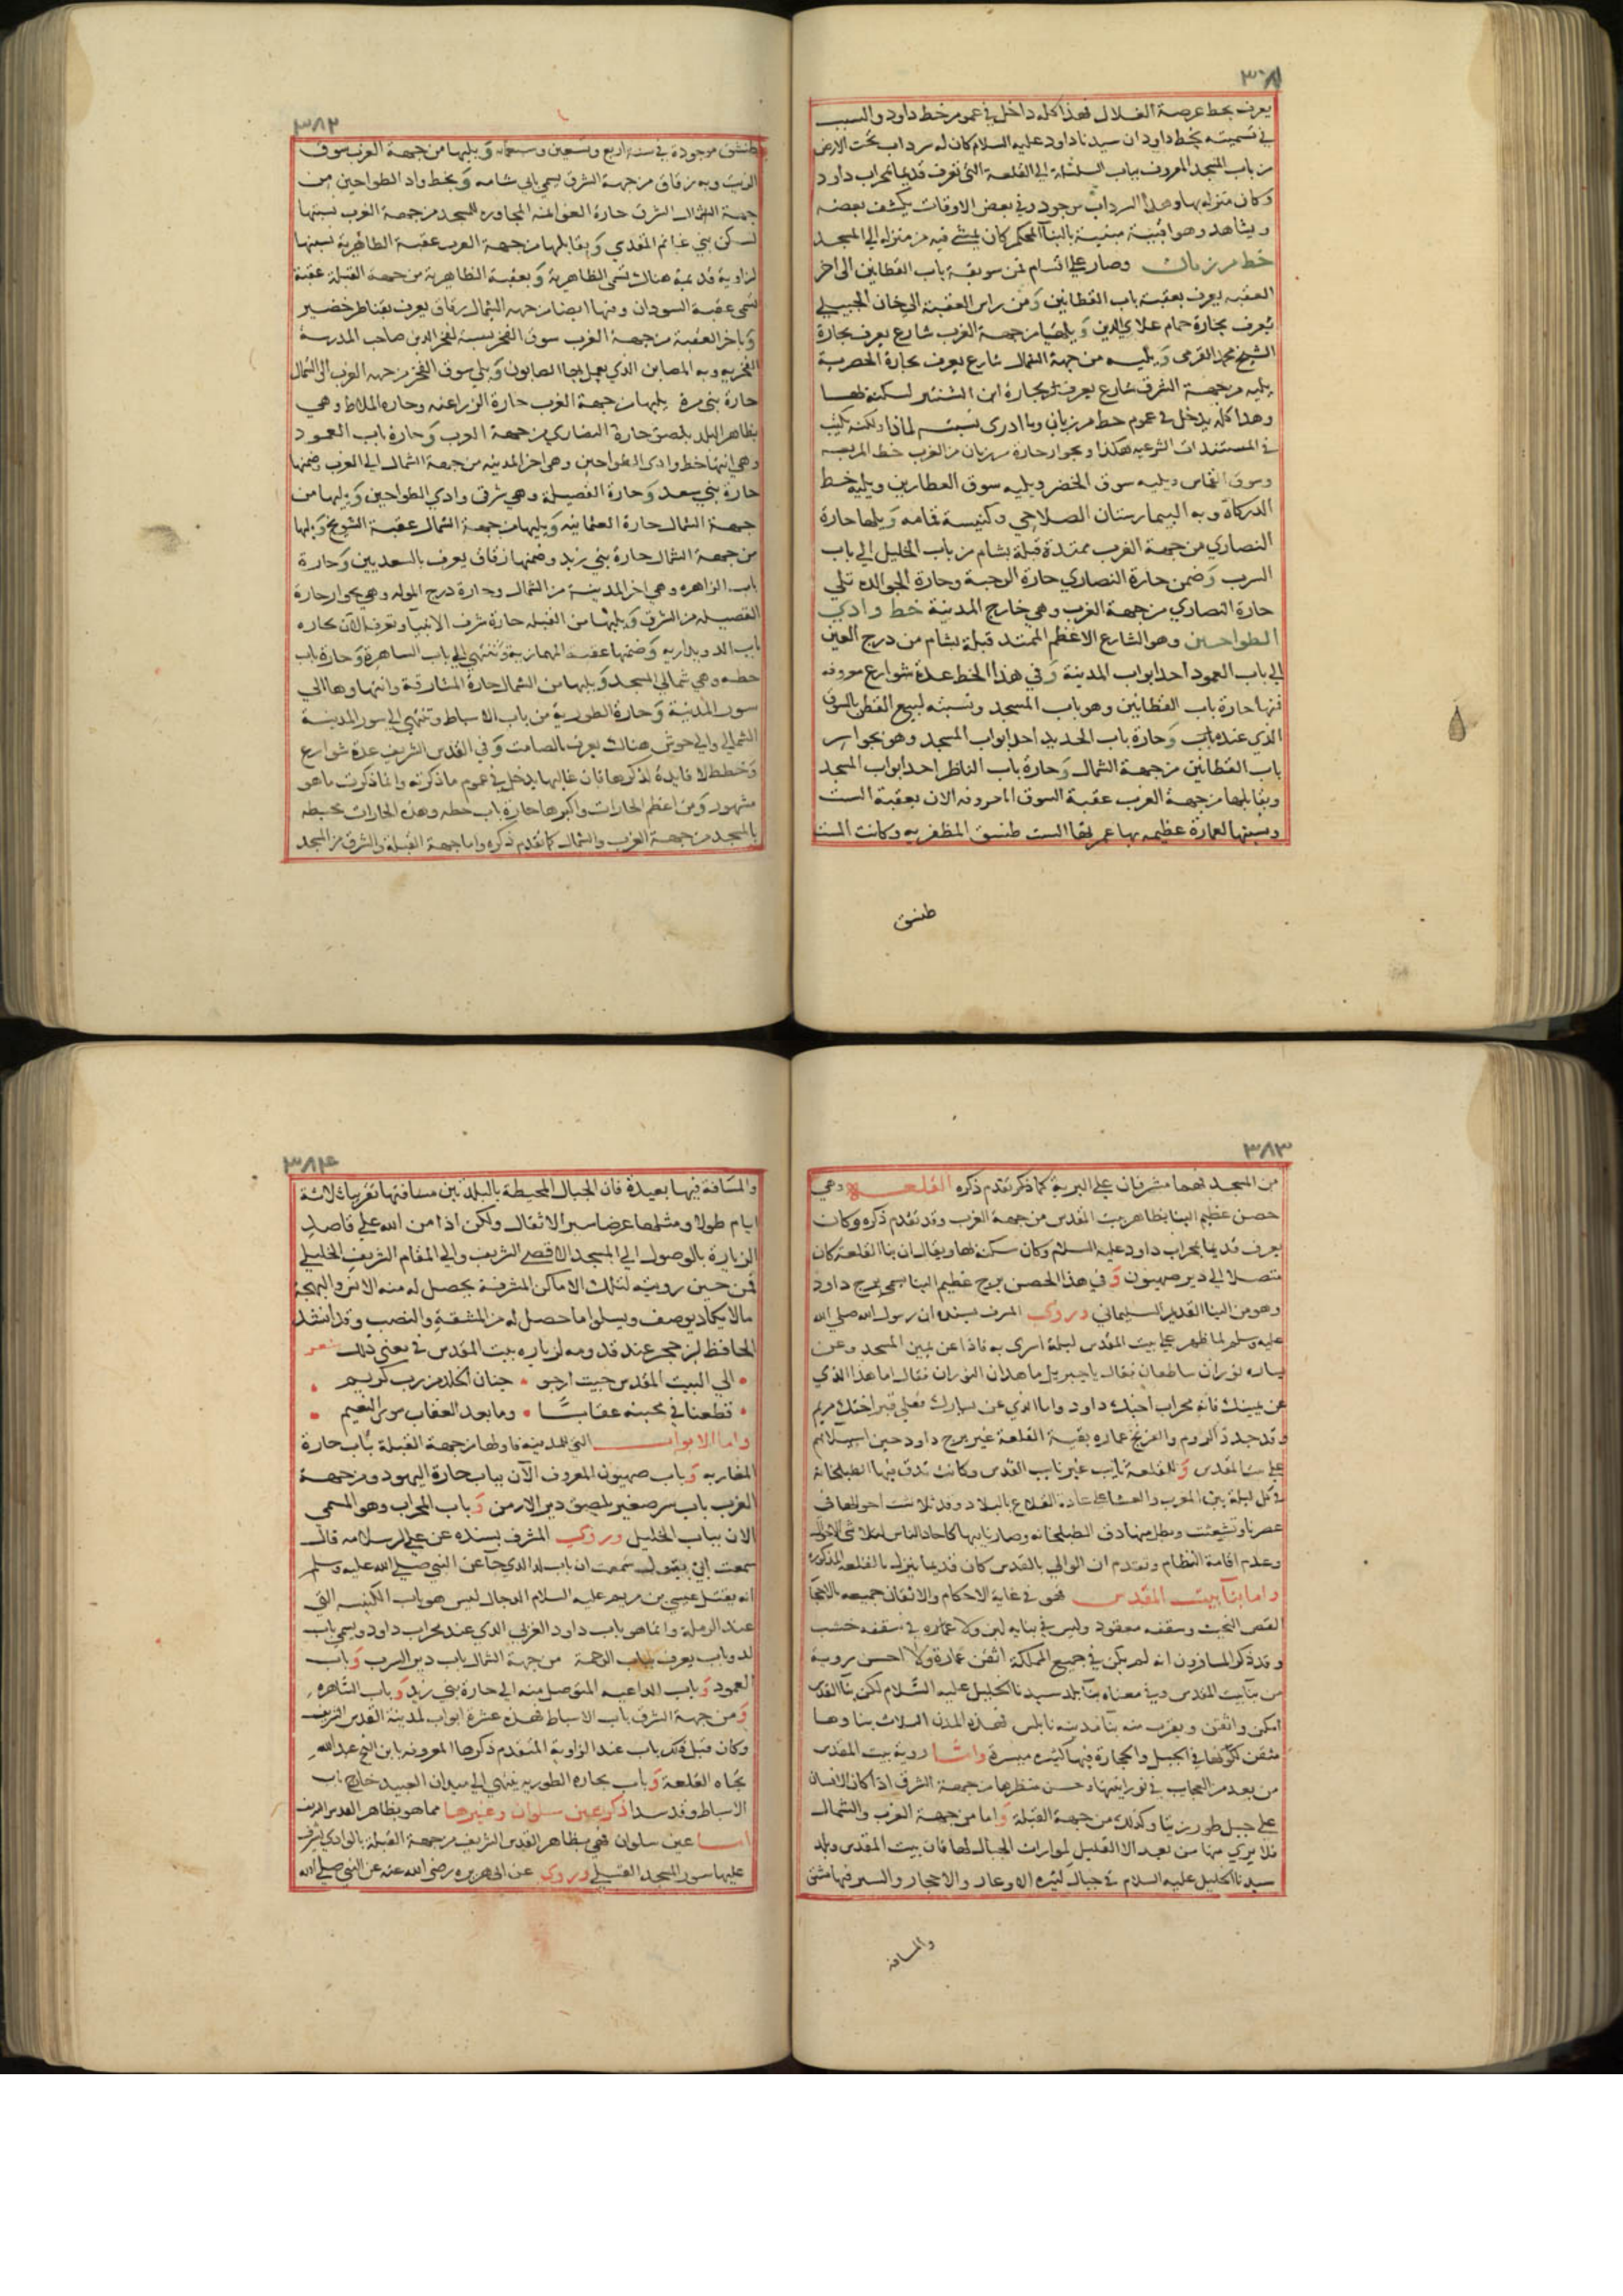 ٣٨١
يعرف بخط عرصة الغلال فهذا كله داخل في عموم خط داود والسبب
في تسميته بخط داود ان سيدنا داود عليه السلام كان له سرداب تحت الارض
من باب المسجد المعروف بباب السلسلة الي القلعة التي تعرف قديما بمحراب داود
وكان منزله بها وهذا السرداب موجود وفي بعض الاوقات يكشف بعضه
ويشاهد وهو اقبية مبنية بالبنا المحكم كان يمشي فيه من منزله الي المسجد
خط مرزبان وصار علي اقسام فمن سويقة باب القطانين الى اخر
العقبه يعرف بعقبة باب القطانين ومن راس العقبة الي خان الجبيلي
يعرف بحارة حمام علاي الدين ويليها من جهة الغرب شارع يعرف بحارة
الشيخ محمد القرمي ويليه من جهة الشمال شارع يعرف بحارة الحصرية
يليه من جهة الشرق شارع يعرف بحارة ابن الشنتير لسكنه بها
وهذا كله يدخل في عموم خط مرزبان وما ادري نسبته لماذا ولكنه يكتب
في المستندات الشرعيه هكذا وبجوار حارة مرزبان من الغرب خط المربعه
وسوق القماس ويليه سوق الخضر ويليه سوق العطارين ويليه خط
الدركاة وبه البيمارستان الصلاحي وكنيسة قمامه ويليها حارة
النصاري من جهة الغرب ممتدة قبلة بشام من باب الخليل الي باب
السرب وضمن حارة النصاري حارة الرحبة وحارة الجوالده تلي
حارة النصاري من جهة الغرب وهي خارج المدينة خط وادي
الطواحين وهو الشارع الاعظم الممتد قبلة بشام من درج العين
الي باب العمود احد ابواب المدينة وفي هذا الخط عدة شوارع معروفه
فمنها حارة باب القطانين وهو باب المسجد ونسبته لبيع القطن بالسوق
الذي عند بابه وحارة باب الحديد احد ابواب المسجد وهو بجوار
باب القطانين من جهة الشمال وحارة باب الناظر احد ابواب المسجد
ويقابلها من جهة الغرب عقبة السوق المعروفه الان بعقبة الست
ونسبتها لعمارة عظيمه بها عمرتها الست طنسق المظفريه وكانت الست
طنسق
٣٨٢
طنشق موجودة في سنة اربع وتسعين وسبعمايه ويليها من جهة الغرب سوق
الزيت وبه زقاق من جهة الشرق يسمي ابي شامه وبخط واد الطواحين من
جهة الشمال الشرق حارة الغوانمه المجاوره للمسجد من جهة الغرب نسبتها
لسكن بني غانم المقدسي ويقابلها من جهة الغرب عقبة الظاهرية نسبتها
لزاوية قديمة هناك تسمي الظاهرية وبعقبة الظاهرية من جهة القبلة عقبة
تسمي عقبة السودان وفيها ايضا من جهة الشمال زقاق يعرف بقناطر خضير
وباخر العقبة من جهة الغرب سوق الفخر نسبة لفخر الدين صاحب المدرسة
الفخريه وبه المصابن الذي يعمل بها الصابون ويلي سوق الفخر من جهه الغرب الى الشمال
حارة بني مرة يليها من جهة الغرب حارة الزراعنه وحاره الملاط وهي
بظاهر البلد بلصق حارة النصاري من جهة الغرب وحارة باب العمود
وهي انتها خط وادي الطواحين وهي اخر المدينه من جهة الشمال الي الغرب وضمنها
حارة بني سعد وحارة الفصيلة وهي شرقي وادي الطواحين ويليها من
جهة الشمال حارة العثمانيه ويليها من جهة الشمال عقبة الشويخ ويليها
من جهة الشمال حارة بني زيد وضمنها زقاق يعرف بالسعديين وحارة
باب الزاهره وهي اخر المدينة من الشمال وحارة درج المولة وهي بجوار حارة
الفصيله من الشرق ويليها من القبله حارة شرف الانبيا وتعرف الآن بحاره
باب الدويداريه وضمنها عقبة المهمازيه وتنتهي الي باب الساهرة وحارة باب
حطه وهي شمالي المسجد ويليها من الشمال حارة المشارقة وانتهاوها الي
سور المدينة وحارة الطورية من باب الاسباط وتنتهي الي سور المدينة
الشمالي والي حوش هناك يعرف بالصامت وفي القدس الشريف عدة شوارع
وخطط لا فايدة لذكرها فان غالبها يدخل في عموم ما ذكرته وانما ذكرت ما هو
مشهور ومن اعظم الحارات واكبرها حارة باب حطه وهذه الحارات محيطه
بالمسجد من جهة الغرب والشمال كما تقدم ذكره واما جهة القبلة والشرق من المسجد
٣٨٣
من المسجد فهما مشرفان علي البرية كما ذكر تقدم ذكره القلعه وهي
حصن عظيم البنا بظاهر بيت المقدس من جهة الغرب وقد تقدم ذكره وكان
يعرف قديما بمحراب داود عليه السلام وكان سكنه بها ويقال ان بنا القلعة كان
متصلا الي دير صهيون وفي هذا الحصن برج عظيم البنا يسمي برج داود
وهو من البنا القديم السليماني وروي المشرف بسنده ان رسول الله صلي الله
عليه وسلم لما ظهر علي بيت المقدس ليلة اسري به فاذا عن يمين المسجد وعن
يساره نوران ساطعان فقال يا جبريل ما هذان النوران فقال اما هذا الذي
عن يمينك فانه محراب اخيك داود واما الذي عن يسارك فعلي قبر اختك مريم
وقد جدد الروم والفرنج عماره بقية القلعة غير برج داود حين استيلائهم
علي بيت المقدس وللقلعة نايب غير نايب القدس وكانت تدق فيها الطبلخانة
في كل ليلة بين المغرب والعشا علي عادة القلاع بالبلاد وقد تلاشت احوالها في
عصرنا وتشعثت وبطل منها دق الطبلخانه وصار نايبها كاحاد الناس لتلاشي الاحوال
وعدم اقامة النظام وتقدم ان الوالي بالقدس كان قديما ينزل بالقلعه المذكورة
واما بنا بيت المقدس فهو في غاية الاحكام والاتقان جميعه بالاحجار
القص النحيت وسقفه معقود وليس في بنايه لبن ولا عماره في سقفه خشب
وقد ذكر المسافرون انه لم يكن في جميع المملكة اتقن عمارة ولا احسن روية
من بنا بيت المقدس وفي معناه بنا بلد سيدنا الخليل عليه السلام لكن بنا القدس
امكن واتقن ويقرب منه بنا مدينه نابلس فهذه المدن الثلاث بناوها
متقن لكونها في الجبل والحجارة فيها كثيره ميسرة واما روية بيت المقدس
من بعد من العجايب في نورانيتها وحسن منظرها من جهة الشرق اذا كان الانسان
علي جبل طور زيتا وكذلك من جهة القبلة واما من جهة الغرب والشمال
فلا يري منها من بعد الا القليل لمواراة الجبال لها فان بيت المقدس وبلد
سيدنا الخليل عليه السلام في جبال كثيره الاوعار والاحجار والسير فيها مشق
والمسافه
٣٨٤
والمسافة فيها بعيدة فان الجبال المحيطة بالبلدتين مسافتها تقريبا ثلاثة
ايام طولا ومثلها عرضا بسير الاثقال ولكن اذا من الله علي قاصد
الزيارة بالوصول الي المسجد الاقصي الشريف والي المقام الشريف الخليلي
فمن حين رويته لتلك الاماكن المشرفة يحصل له منه الانس والبهجة
مالا يكاد يوصف ويسلوا ما حصل له من المشقة والنصب وقد انشد
الحافظ ابن حجر عند قدومه لزياره بيت المقدس في معني ذلك شعر
الي البيت المقدس جيت ارجو • جنان الخلد من رب كريم
قطعنا في محبته عقابا • وما بعد العقاب سوي النعيم
واما الابواب التي للمدينه فاولها من جهة القبلة باب حارة
المغاربه وباب صهيون المعروف الآن بباب حارة اليهود ومن جهة
الغرب باب سر صغير بلصق دير الارمن وباب المحراب وهو المسمي
الان بباب الخليل وروي المشرف بسنده عن علي بن سلامه قال
سمعت ابي يقول سمعت ان باب لد الذي جا عن النبي صلي الله عليه وسلم
انه يقتل عيسي بن مريم عليه السلام الدجال ليس هو باب الكنيسه التي
عند الرملة وانما هو باب داود الغربي الذي عند محراب داود ويسمي باب
لد وباب يعرف بباب الرحمة من جهة الشمال باب دير السرب وباب
العمود وباب الداعيه المتوصل منه الي حارة بني زيد وباب الساهره
ومن جهة الشرق باب الاسباط فهذه عشرة ابواب لمدينة القدس الشريف
وكان قبل ذلك باب عند الزاوية المتقدم ذكرها المعروفه بابن الشيخ عبدالله
تجاه القلعة وباب بحاره الطوريه ينتهي الي ميدان العبيد خارج باب
الاسباط وقد سدا ذكر عين سلوان وغيرها مما هو بظاهر القدس الشريف
اما عين سلوان فهي بظاهر القدس الشريف من جهة القبلة بالوادي يشرف
عليها سور المسجد القبلي وروي عن ابي هريره رضي الله عنه عن النبي صلي الله